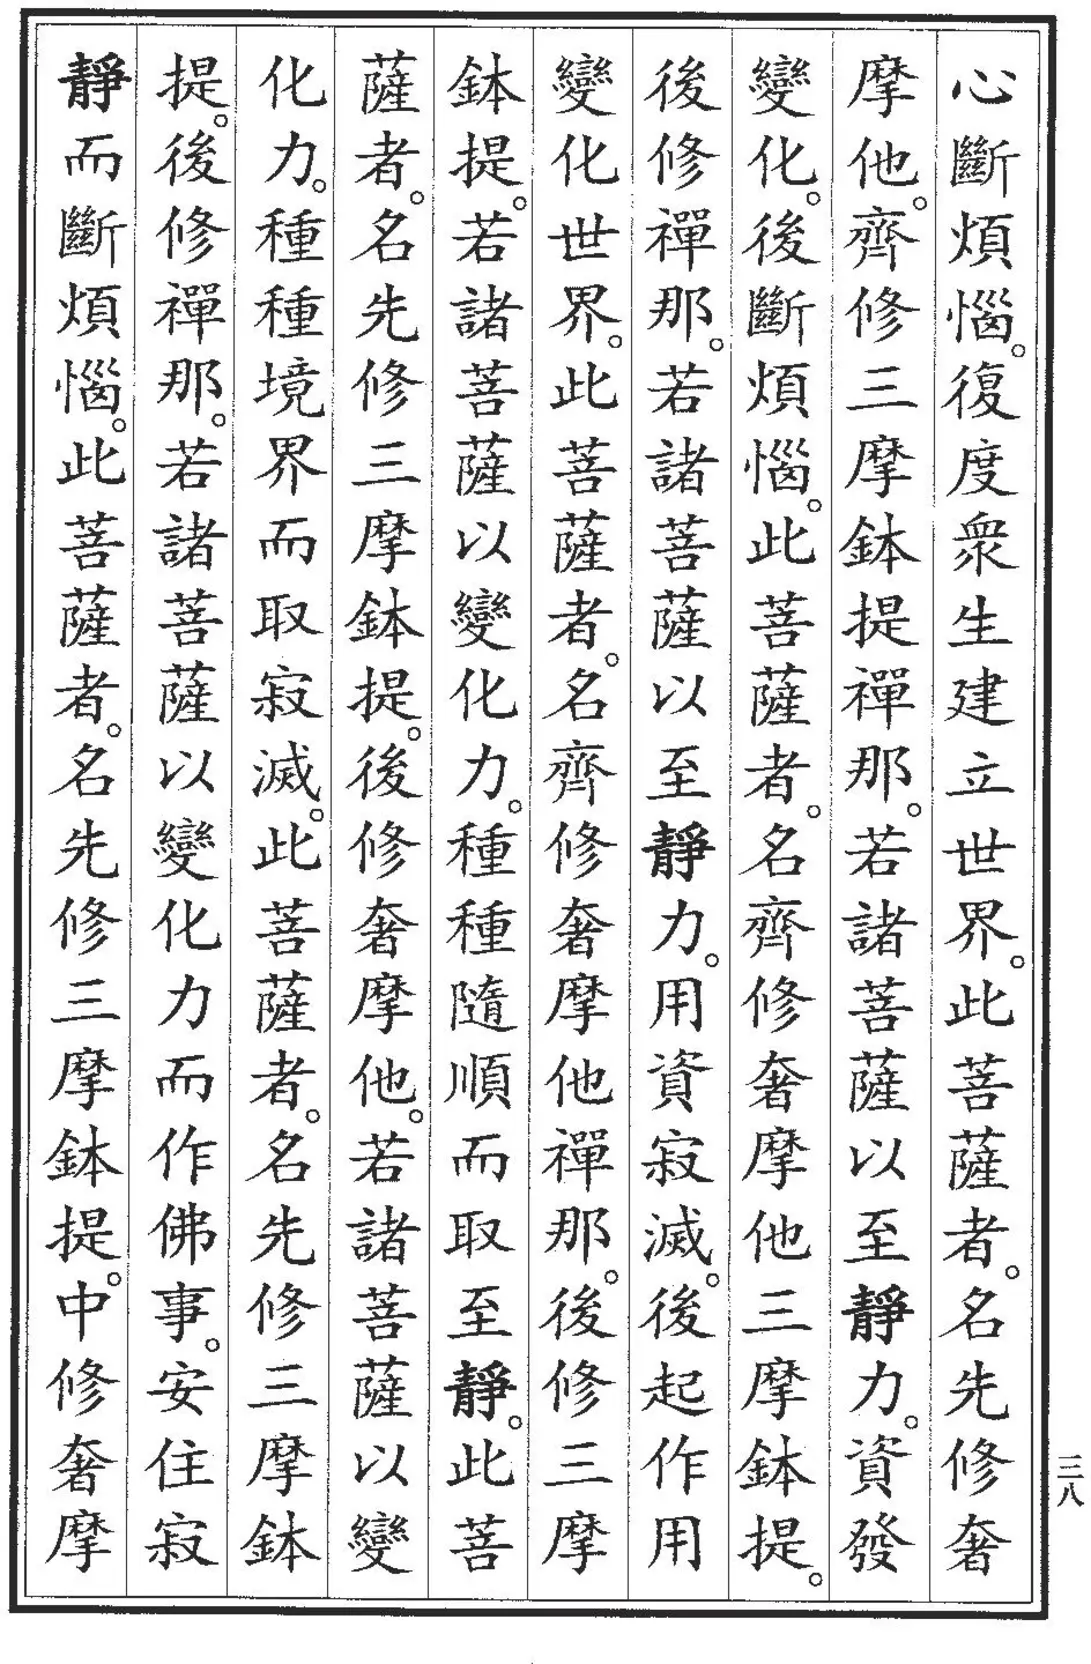 心斷煩惱。復度衆生建立世界。此菩薩者。名先修奢
摩他。齊修三摩鉢提禪那。若諸菩薩以至靜力。資發
變化。後斷煩惱。此菩薩者。名齊修奢摩他三摩鉢提。
後修禪那。若諸菩薩以至靜力。用資寂滅。後起作用
變化世界。此菩薩者。名齊修奢摩他禪那。後修三摩
鉢提。若諸菩薩以變化力。種種隨順而取至靜。此菩
薩者。名先修三摩鉢提。後修奢摩他。若諸菩薩以變
化力。種種境界而取寂滅。此菩薩者。名先修三摩鉢
提。後修禪那。若諸菩薩以變化力而作佛事。安住寂
靜而斷煩惱。此菩薩者。名先修三摩鉢提。中修奢摩
三八